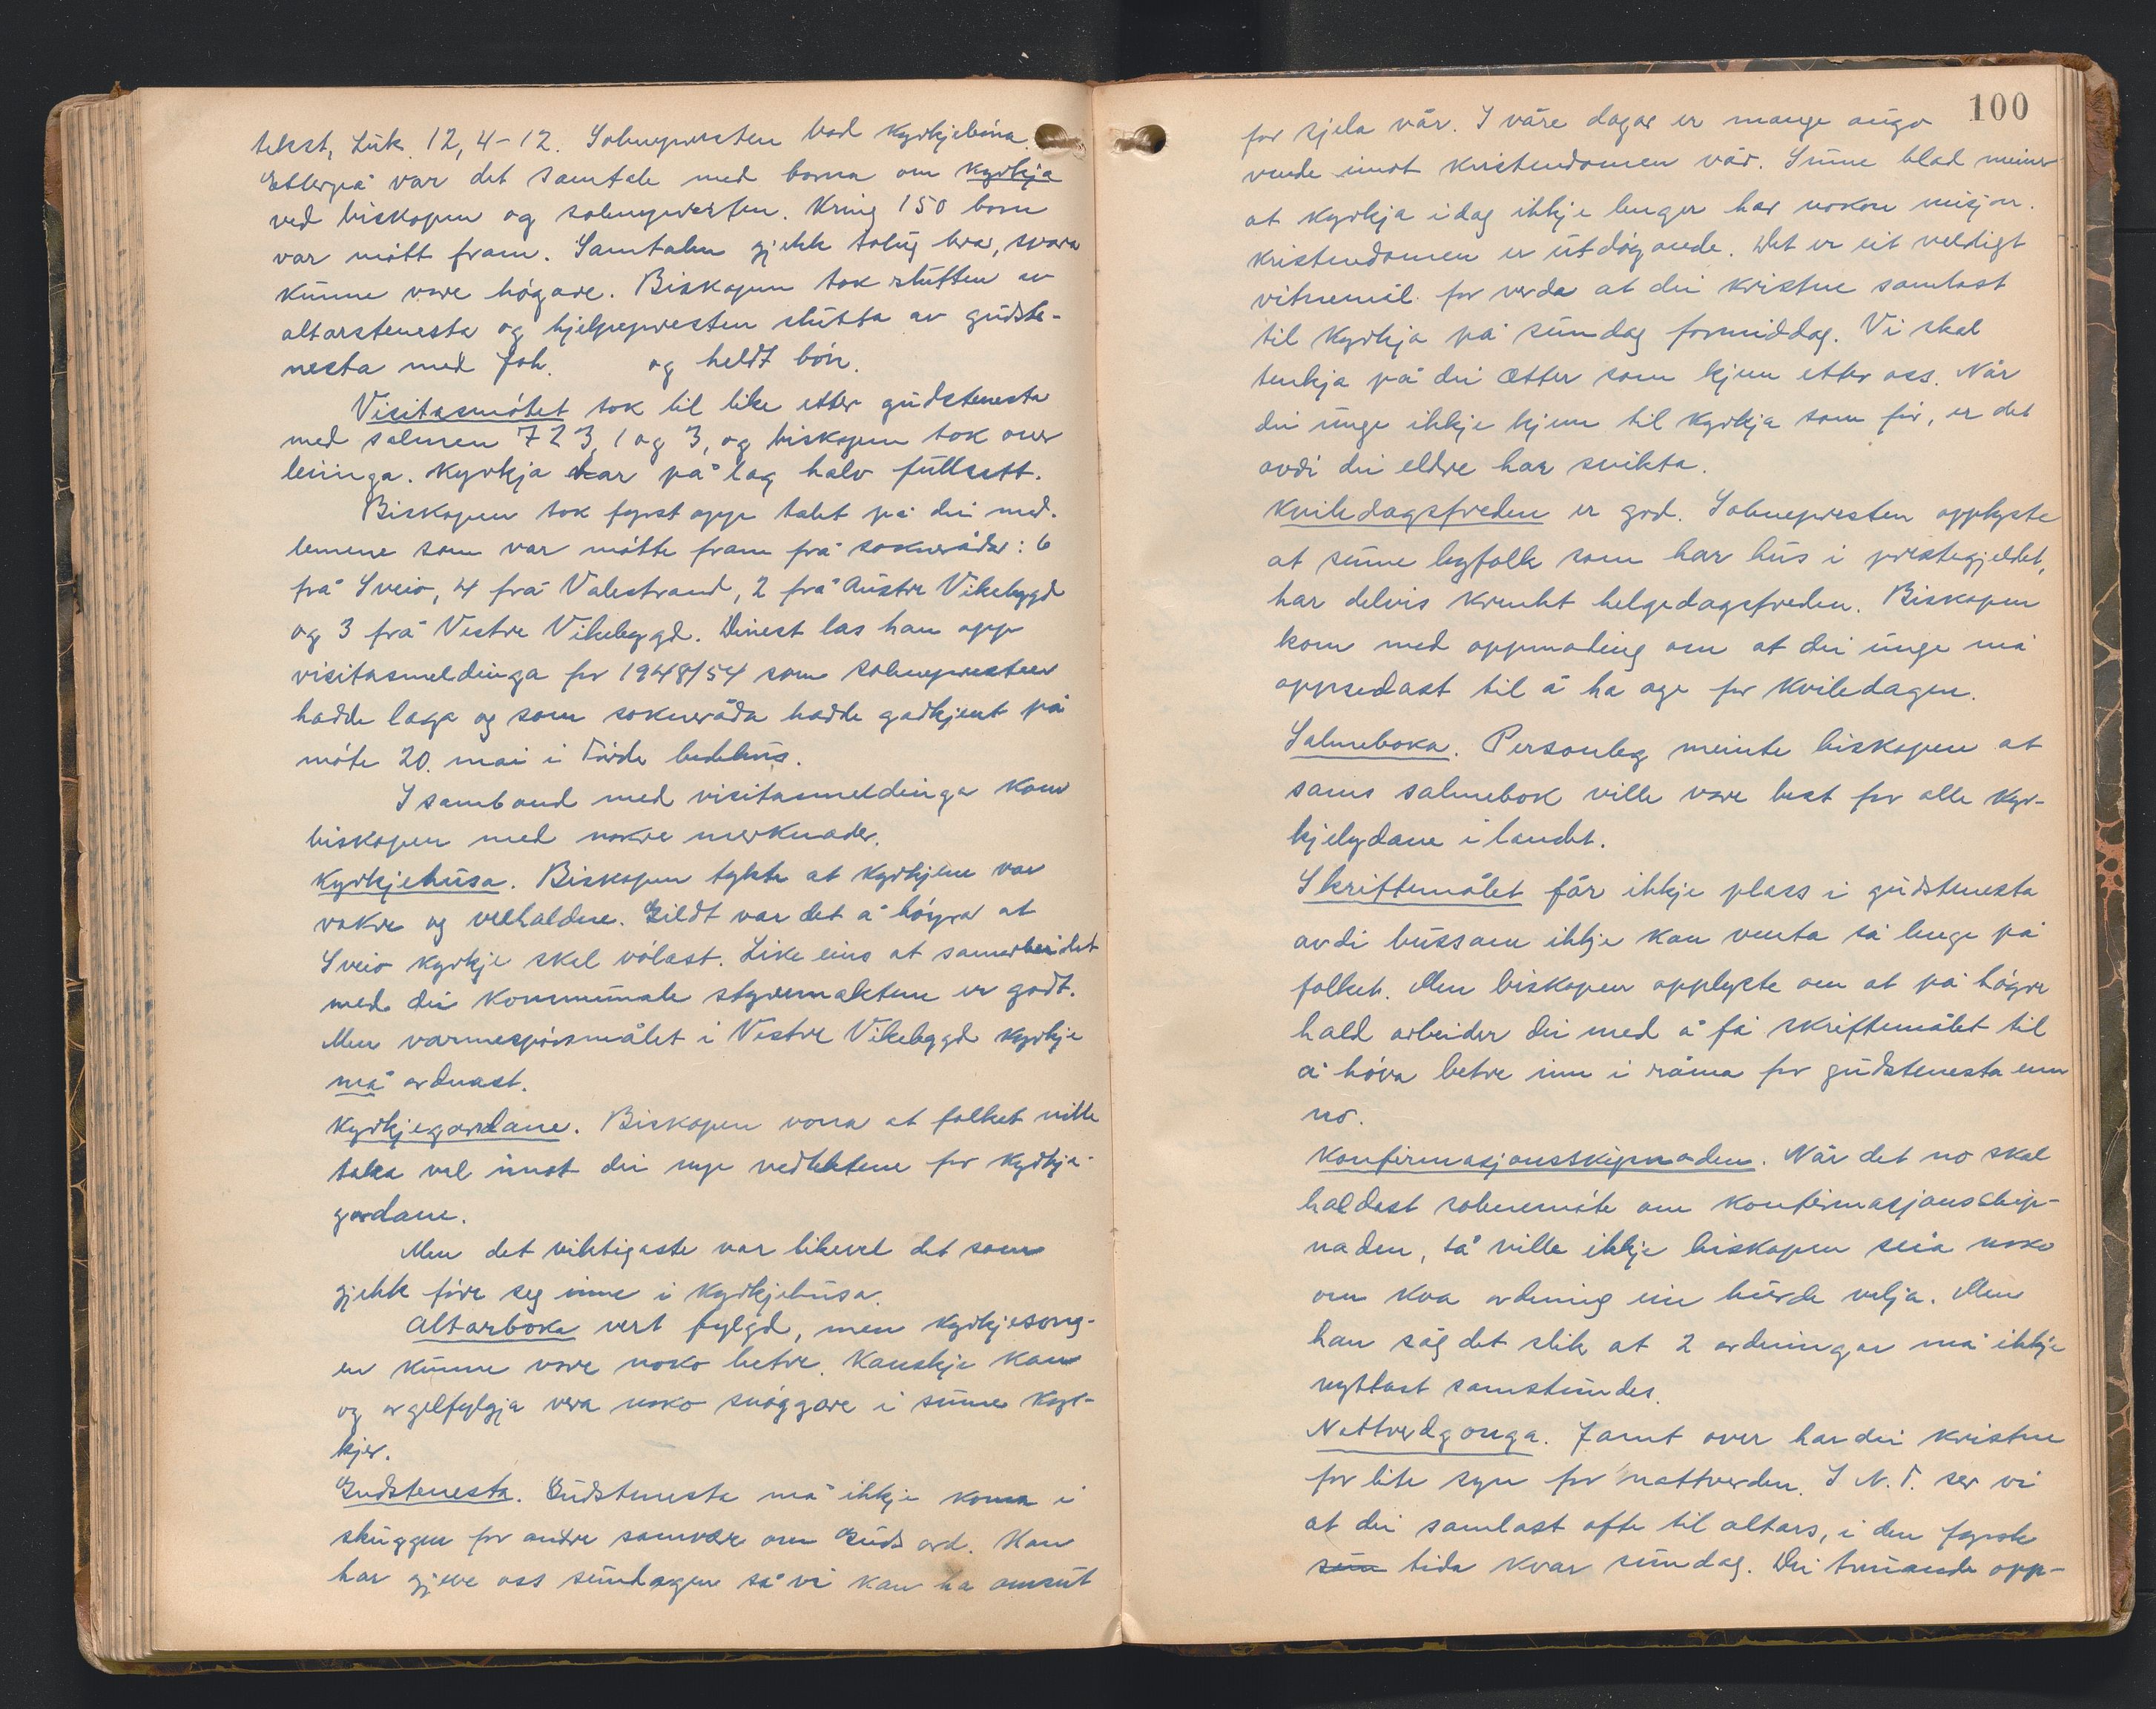 tekst, Luk. 12, 4-12. Soknepresten bad kyrkjebøna.
Etterpå var det samtale med borna om kyrkja
ved biskopen og soknepresten. Kring 150 born
var møtt fram. Samtalen gjekk tolug bra, svara
kunne vore høgare. Biskopen tok slutten av
altarstenesta og hjelpepresten slutta av gudste-
nesta med Joh. og heldt bøn.
Visitasmøtet tok til like etter gudstenesta
med salmen 723, 1 og 3, og biskopen tok over
leiinga. Kyrkja var på lag halv fullsett.
Biskopen tok fyrst opp talet på dei med-
lemene som var møtte fram frå sokneråda: 6
frå Sveio, 4 frå Valestrand, 2 frå Austre Vikebygd
og 3 frå Vestre Vikebygd. Dinest las han opp
visitasmeldinga for 1948/54 som soknepresten
hadde laga og som sokneråda hadde godkjent på
møte 20. mai i Førde bedehus.
I samband med visitasmeldinga kom
biskopen med nokre merknader.
Kyrkjehusa. Biskopen tykte at kyrkjene var
vakre og velhaldne. Gildt var det å høyra at
Sveio kyrkje skal vølast. Like eins at samarbeidet
med dei kommunale styremaktene er godt.
Men varmespørsmålet i Vestre Vikebygd kyrkje
må ordnast.
Kyrkjegardane. Biskopen vona at folket ville
taka vel imot dei nye vedtektene for kyrkje-
gardane.
Men det viktigaste var likevel det som
gjekk føre seg inne i kyrkjehusa.
Altarboka vert fylgd, men kyrkjesong-
en kunne vore noko betre. Kanskje kan
og orgelfylgja vera noko snøggare i sume kyr-
kjer.
Gudstenesta. Gudstenesta må ikkje koma i
skuggen for andre samvære om Guds ord. Han
har gjeve oss sundagen så vi kan ha omsut
100
for sjela vår. I våre dagar er mange augo
vende imot kristendomen vår. Sume blad meiner
at kyrkja idag ikkje lenger har nokon misjon.
Kristendomen er utdøyande. Det er eit veldigt
vitnemål for verda at dei kristne samlast
til kyrkja på sundag formiddag. Vi skal
tenkja på dei ætter som kjem etter oss. Når
dei unge ikkje kjem til kyrkja som før, er det
avdi dei eldre har svikta.
Kviledagsfreden er god. Soknepresten opplyste
at sume byfolk som har hus i prestegjeldet,
har delvis krenkt helgedagsfreden. Biskopen
kom med oppmoding om at dei unge må
oppsedast til å ha age for kviledagen.
Salmeboka. Personleg meinte biskopen at
sams salmebok ville vore best for alle kyr-
kjelydane i landet.
Skriftemålet får ikkje plass i gudstenesta
avdi bussane ikkje kan venta så lenge på
folket. Men biskopen opplyste om at på høgre
hald arbeider dei med å få skriftemålet til
å høva betre inn i råma for gudstenesta enn
no.
Konfirmasjonsskipnaden. Når det no skal
haldast soknemøte om konfirmasjonsskip-
naden, så ville ikkje biskopen seia noko
om kva ordning ein burde velja. Men
han såg det slik at 2 ordningar må ikkje
nyttast samstundes.
Nattverdgonga. Jamt over har dei kristne
for lite syn for nattverden. I N.T. ser vi
at dei samlast ofte til altars, i den fyrste
tida kvar sundag. Dei truande opp-